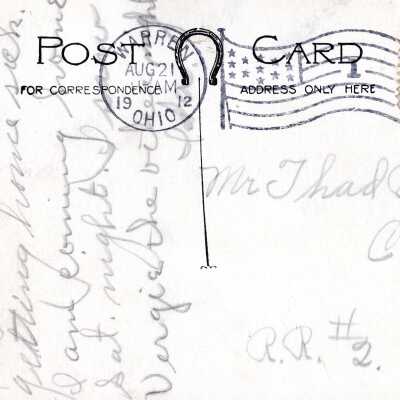 POST CARD
FOR CORRESPONDENCE
ADDRESS ONLY HERE
WARREN
AUG 21
AM
1912
OHIO
1
Mr Thad
C
R.R. #2.
getting home sick.
I am coming home
Sat. night. I
Vergie the